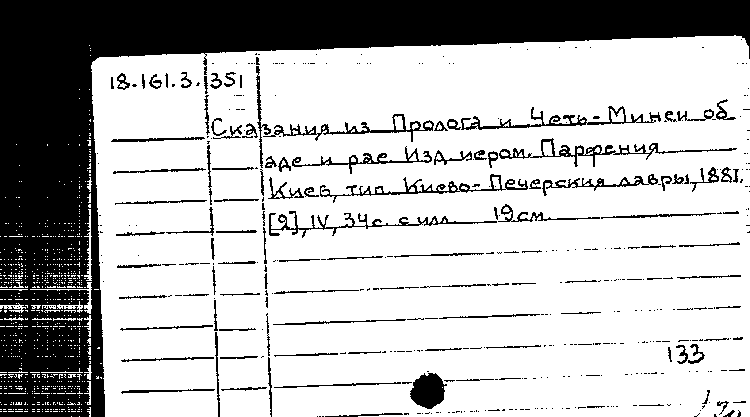 18.161.3.351
Сказания из Пролога и Четь-Минеи об
аде и рае Изд. иером. Парфения
Киев, тип. Киево-Печерския лавры, 1881.
[2], IV, 34с. с илл. 19см.
133